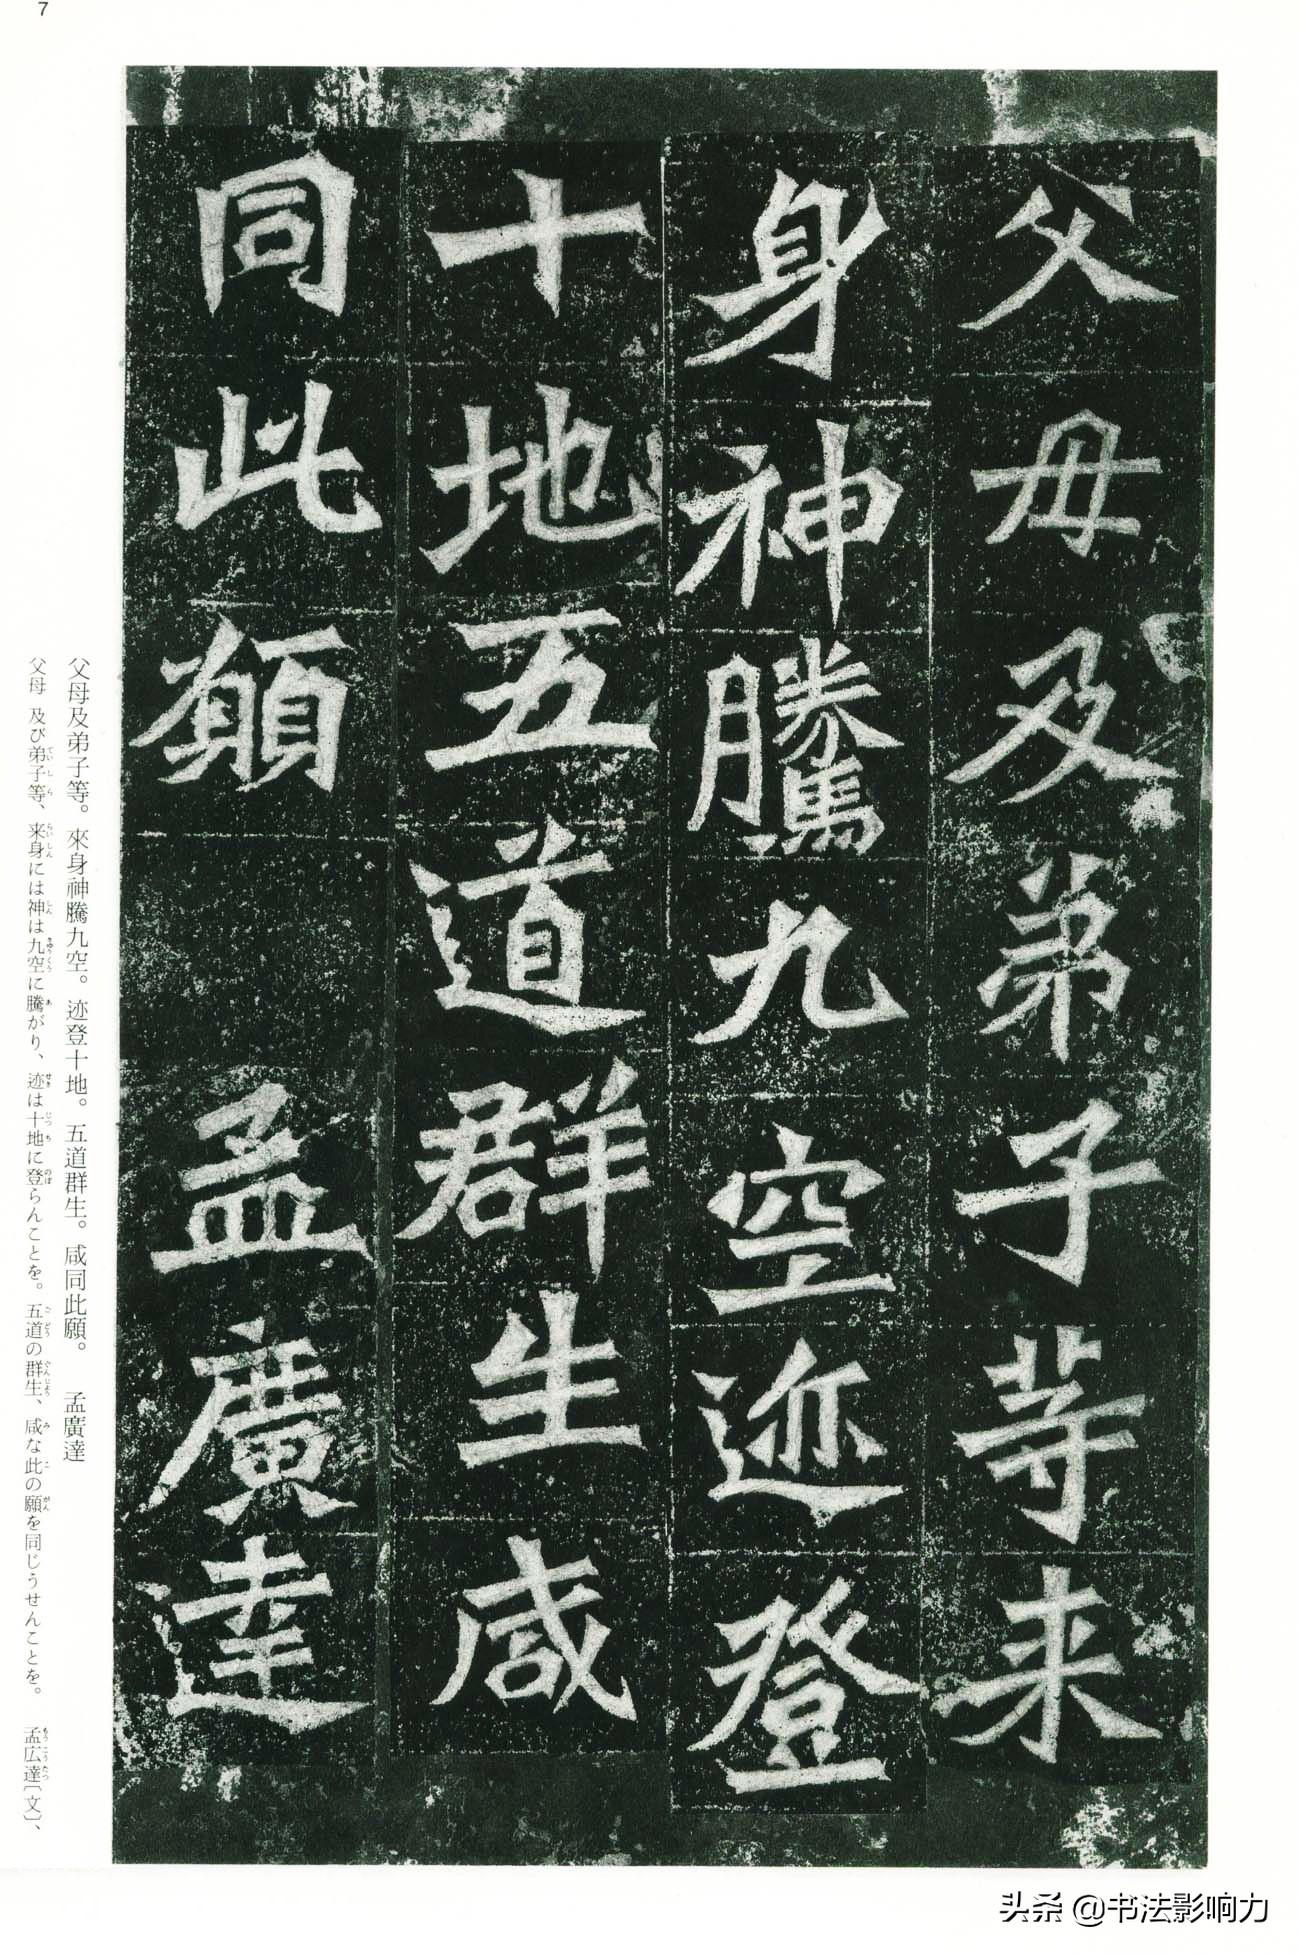 7
父母及弟子等来
身神騰九空迹登
十地五道群生咸
同此願　孟廣達
父母及弟子等。來身神騰九空。迹登十地。五道群生。咸同此願。　孟廣達
父母 及び弟子等、来身には神は九空に騰がり、迹は十地に登らんことを。五道の群生、咸な此の願を同じうせんことを。　孟広達〔文〕、
头条 @书法影响力